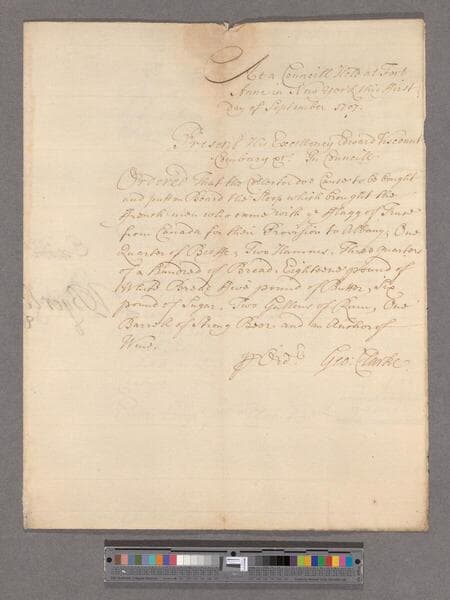 At a Councill Held at Fort
Anne in New York this first
Day of September 1707.
Present His Excellency Edward Viscount
Cornbury &c. In Councill
Ordered That the Collector doe Cause to be bought
and putt on board the Sloop which brought the
French men who came with ye Flagg of Truce
from Canada for their Provision to Albany, One
Quarter of Beeffe, Two Hammes, Three quarters
of a hundred of Bread, Eighteene pound of
White Bread five pound of Butter, Six
pound of Sugar, Two Gallons of Rum, One
Barrell of Strong Beer and an Anchor of
Wine.
Geo: Clarke